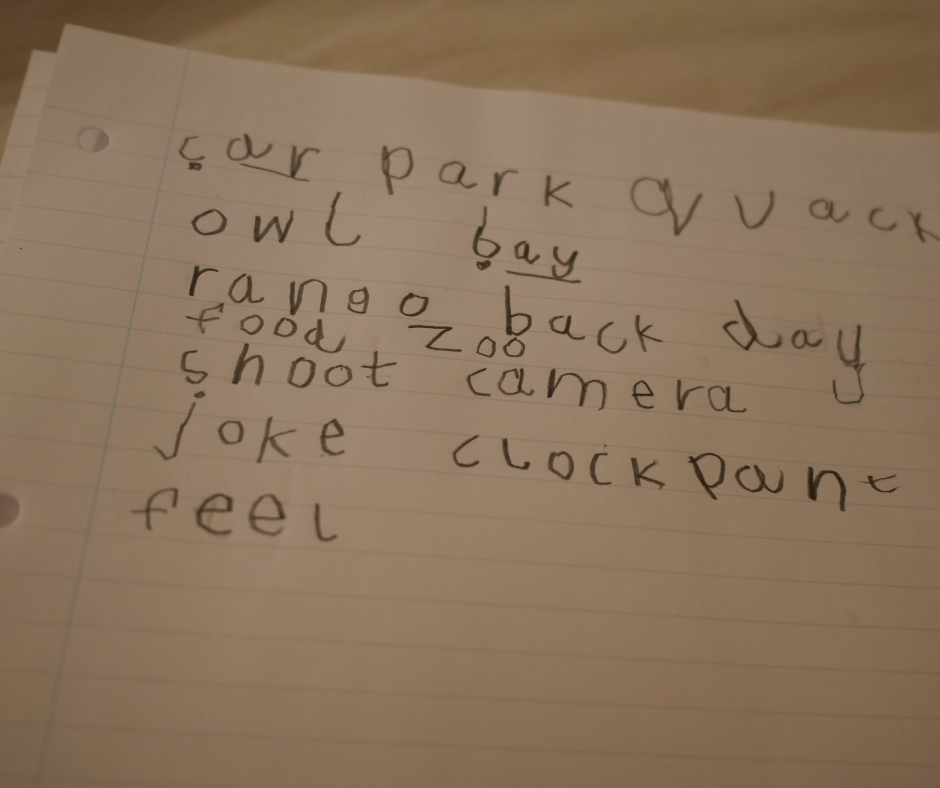 car park quack
owl bay
rango back day
food zoo
shoot camera
joke clock pant
feel